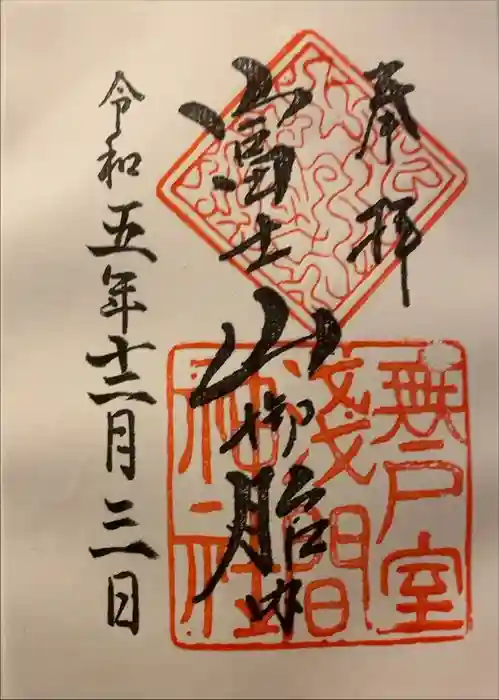 奉拝
富士山御胎内
令和五年十二月三日
無戸室
浅間
神社